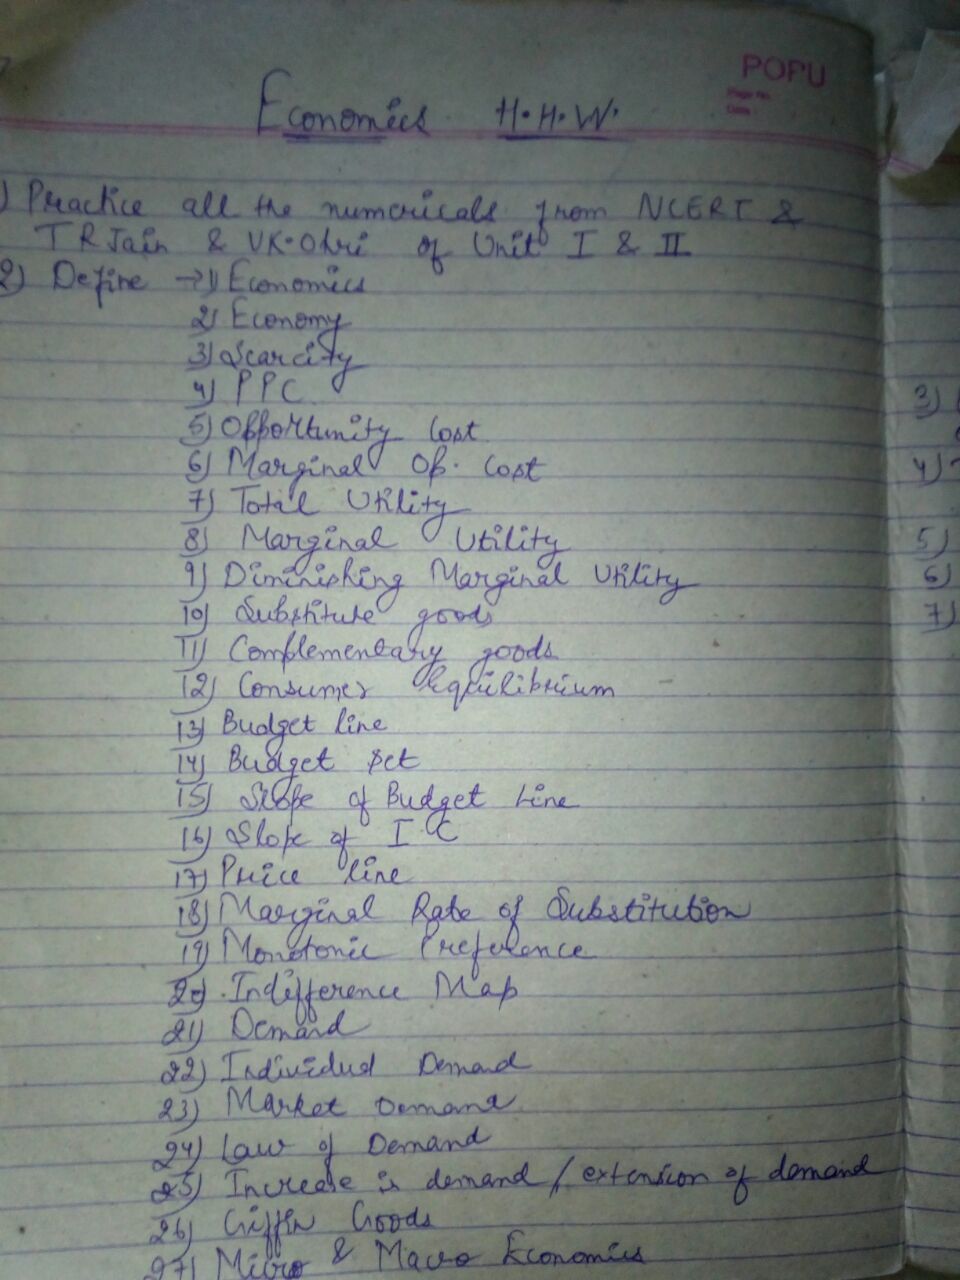 POPU
Page No.
Date
Economics H.H.W.
1) Practice all the numericals from NCERT &
TR Jain & VK.Ohri of Unit I & II
2) Define → 1) Economics
2) Economy
3) Scarcity
4) PPC
5) Opportunity Cost
6) Marginal Op. Cost
7) Total Utility
8) Marginal Utility
9) Diminishing Marginal Utility
10) Substitute goods
11) Complementary goods
12) Consumer Equilibrium
13) Budget line
14) Budget Set
15) Slope of Budget Line
16) Slope of I C
17) Price line
18) Marginal Rate of Substitution
19) Monotonic Preference
20) Indifference Map
21) Demand
22) Individud Demand
23) Market Demand
24) Law of Demand
25) Increase is demand / extension of demand
26) Giffin Goods
27) Micro & Macro Economics
3)
4)
5)
6)
7)